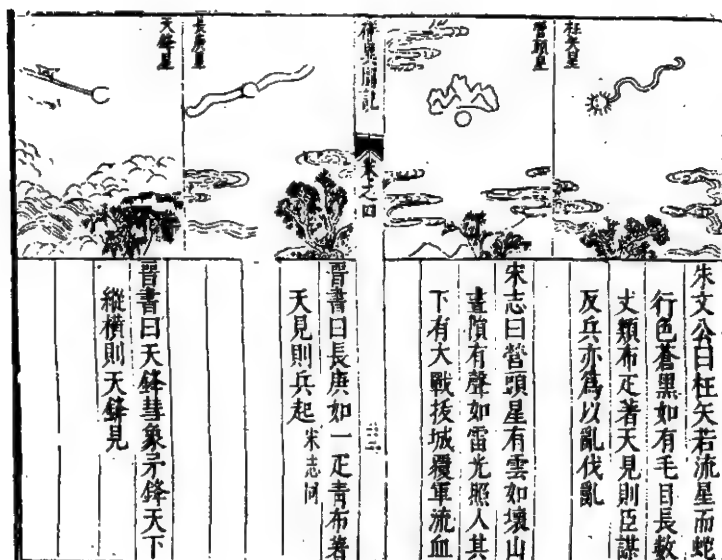 枉矢星
朱文公曰枉矢若流星而蛇
行色蒼黑如有毛目長數
丈類布疋著天見則臣謀
反兵亦為以亂伐亂
營頭星
宋志曰營頭星有雲如壞山
晝隕有聲如雷光照人其
下有大戰拔城覆軍流血
異圖記
卷之四
長庚星
晋書曰長庚如一疋青布著
天見則兵起 宋志同
天鋒星
晋書曰天鋒彗象矛鋒天下
縱橫則天鋒見